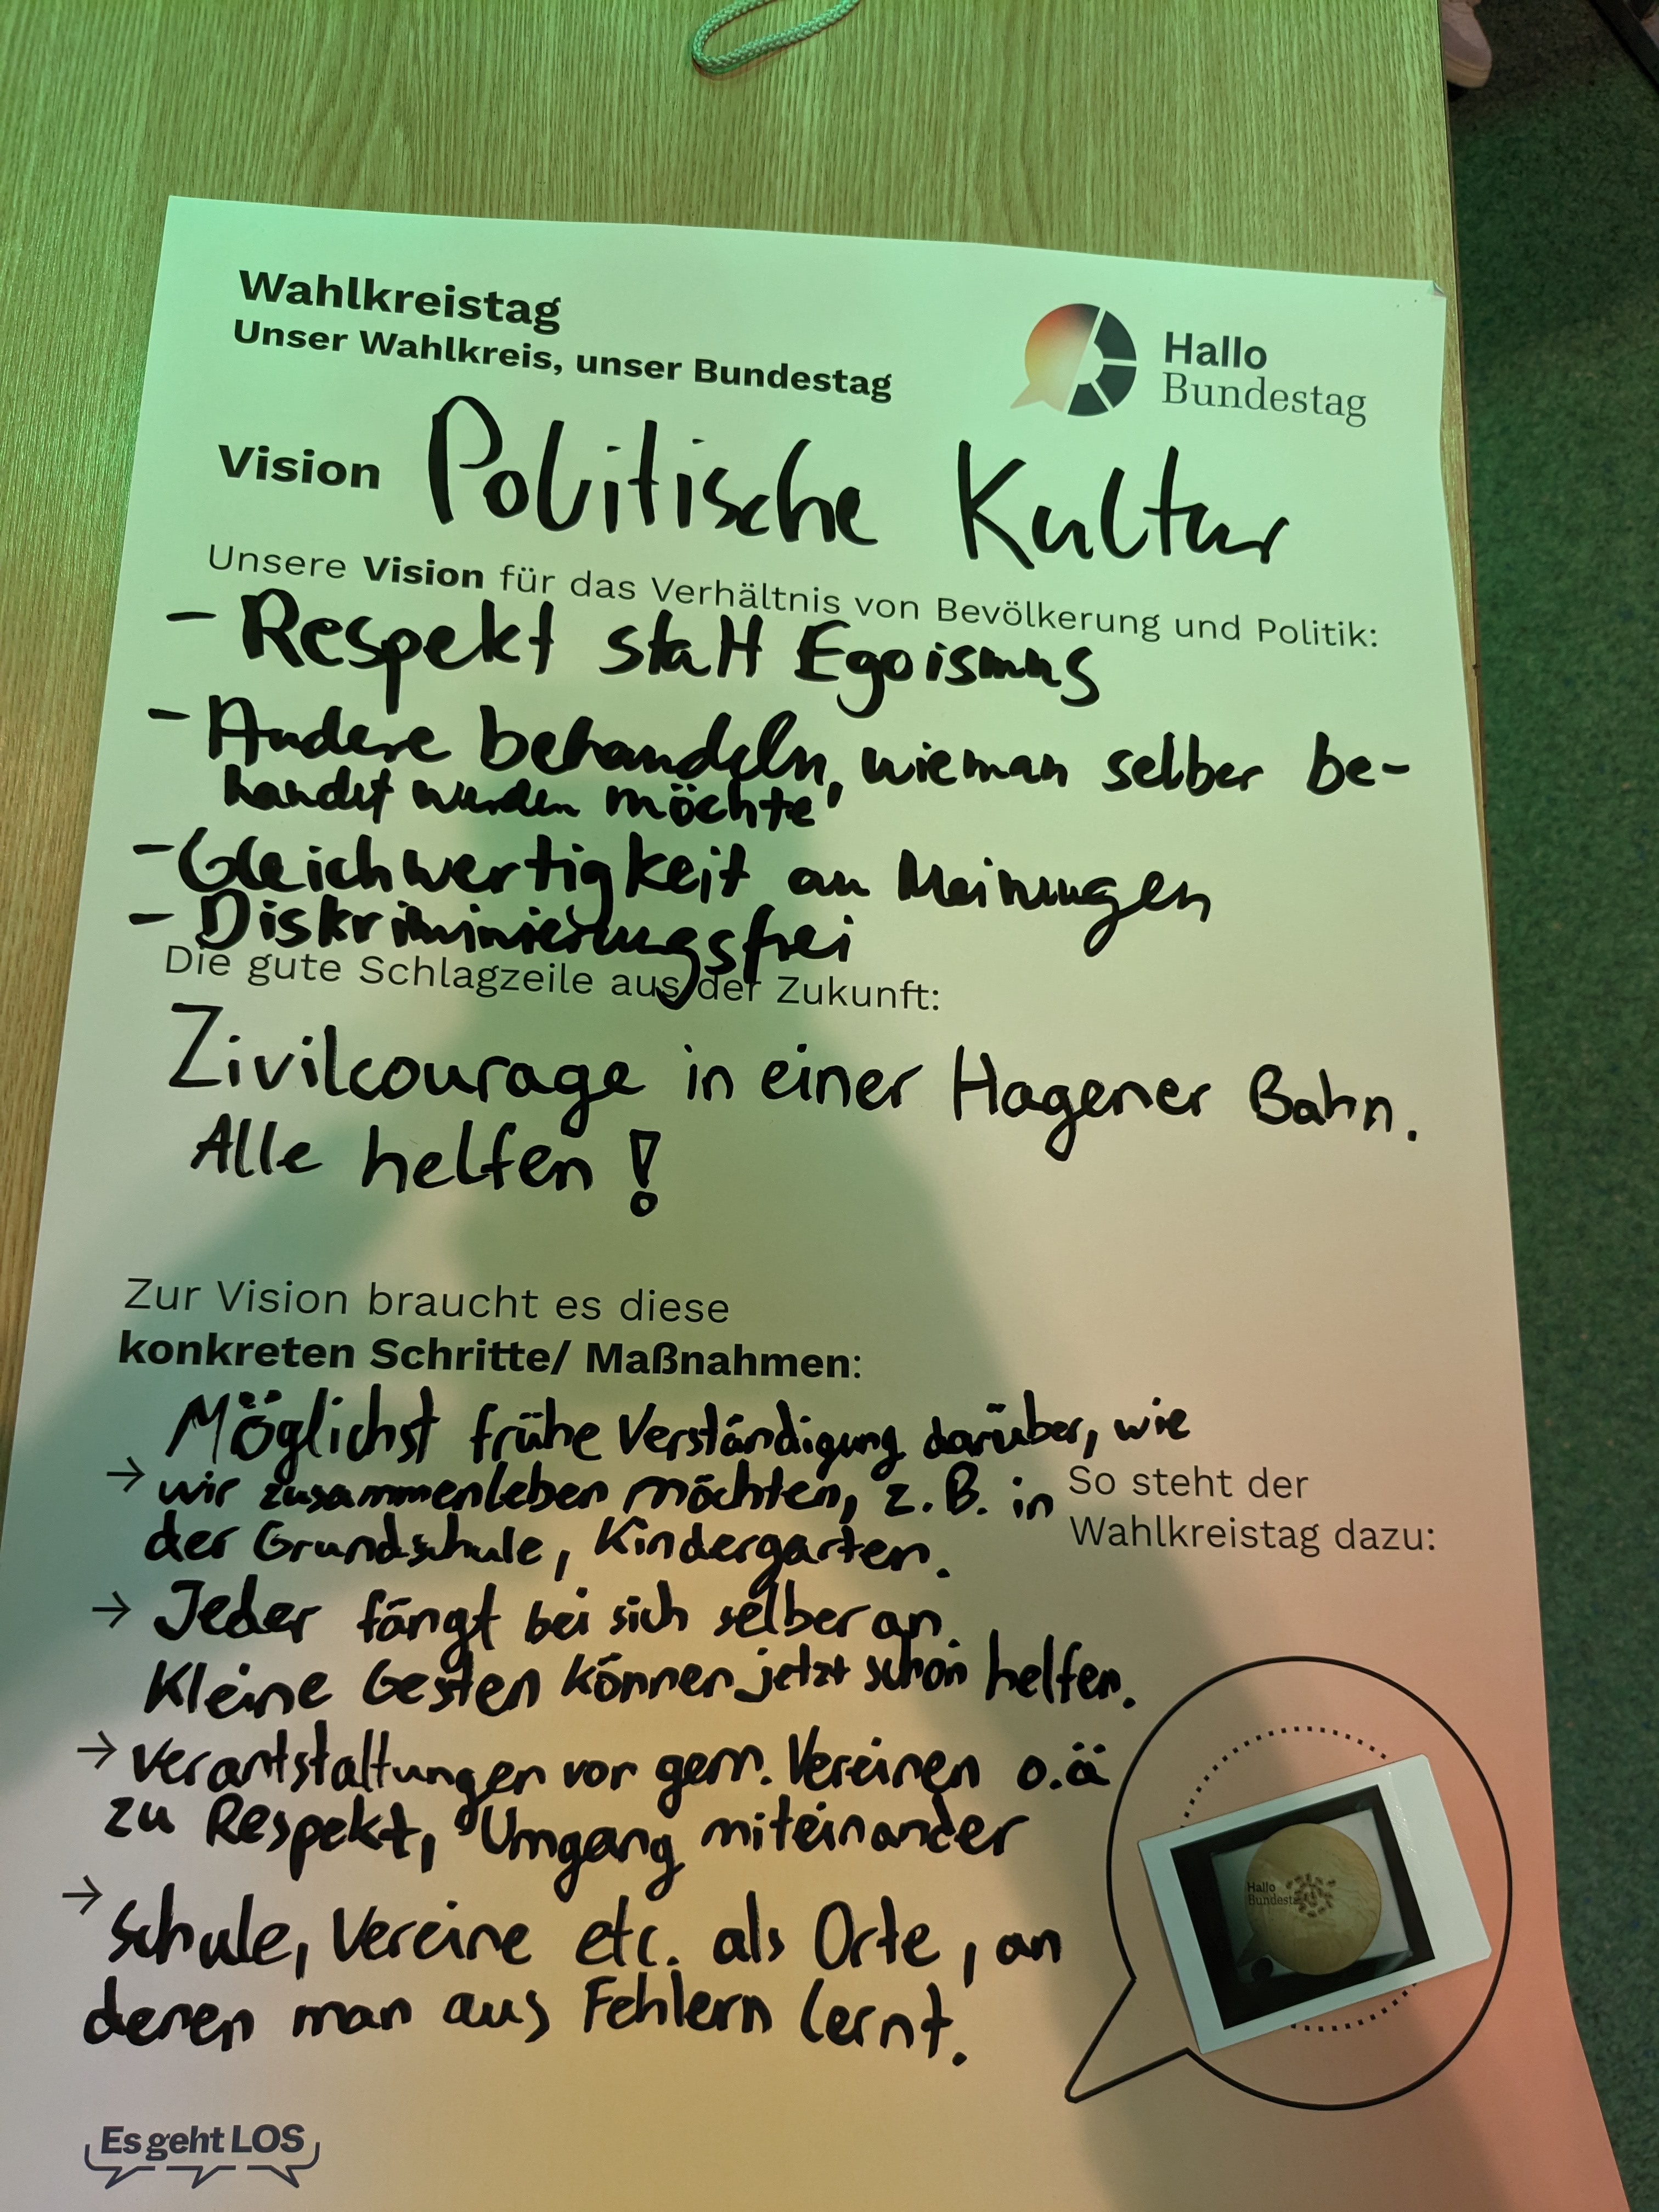 Wahlkreistag
Unser Wahlkreis, unser Bundestag
Hallo
Bundestag
Vision Politische Kultur
Unsere Vision für das Verhältnis von Bevölkerung und Politik:
- Respekt statt Egoismus
- Andere behandeln, wie man selber be-
handelt werden möchte
- Gleichwertigkeit an Meinungen
- Diskriminierungsfrei
Die gute Schlagzeile aus der Zukunft:
Zivilcourage in einer Hagener Bahn.
Alle helfen!
Zur Vision braucht es diese
konkreten Schritte/ Maßnahmen:
Möglichst frühe Verständigung darüber, wie
→ wir zusammenleben möchten, z.B. in
der Grundschule, Kindergarten.
→ Jeder fängt bei sich selber an.
Kleine Gesten können jetzt schon helfen.
→ Verantstaltungen vor gem. Vereinen o.ä
zu Respekt, Umgang miteinander
→ Schule, Vereine etc. als Orte, an
denen man aus Fehlern lernt.
So steht der
Wahlkreistag dazu:
Hallo
Bundestag
Es geht LOS